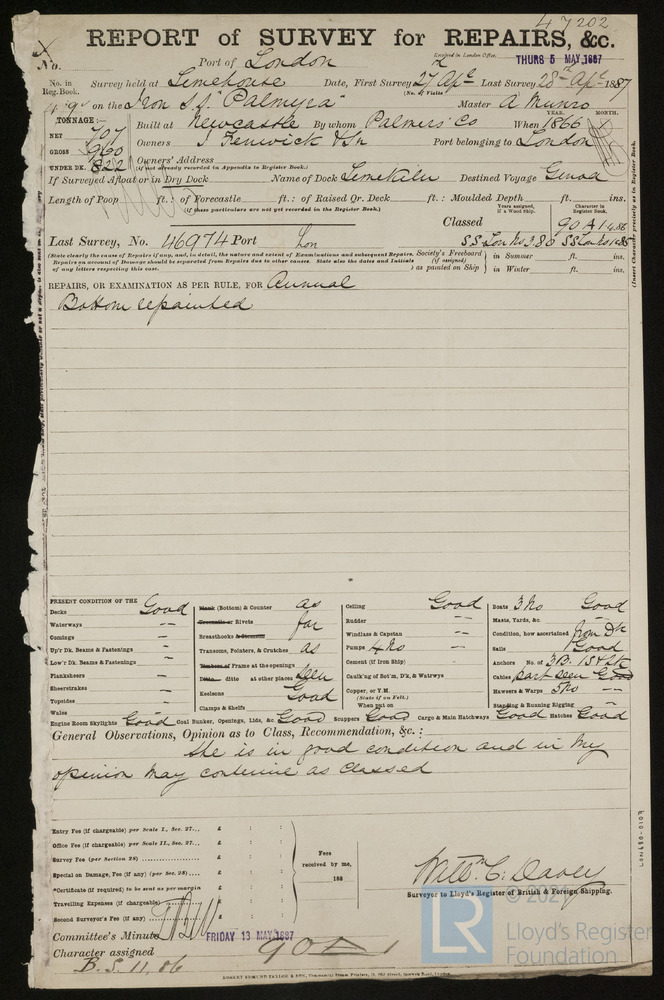 47202
REPORT of SURVEY for REPAIRS, &c.
No.
Port of London
Received in London Office.
THURS 5 MAY 1887
No. in Reg. Book.
Survey held at Limehouse Date, First Survey 27 Apl Last Survey 28th Apl 1887
(No. of Visits 2)
on the Iron S.S. "Palmyra" Master A Munro
TONNAGE:—
NET 707
GROSS 960
UNDER DK. 822
YEAR. MONTH.
Built at Newcastle By whom Palmers' Co When 1866
Owners J Fenwick & Sn Port belonging to London
Owners' Address
(if not already recorded in Appendix to Register Book.)
If Surveyed Afloat or in Dry Dock Name of Dock Limekiln Destined Voyage Genoa
Length of Poop ft.: of Forecastle ft.: of Raised Qr. Deck ft.: Moulded Depth ft. ins.
(if these particulars are not yet recorded in the Register Book.)
Years assigned, if a Wood Ship.
Character in Register Book.
Classed 90 A1 4.86
Last Survey, No. 46974 Port Lon SS Lon No3 80 SS Lon No1 85
(State clearly the cause of Repairs if any, and, in detail, the nature and extent of Examinations and subsequent Repairs.
Repairs on account of Damage should be separated from Repairs due to other causes. State also the dates and Initials
of any letters respecting this case.
Society's Freeboard (if assigned) as painted on Ship
in Summer ft. ins.
in Winter ft. ins.
(Insert Character precisely as in Register Book.
REPAIRS, OR EXAMINATION AS PER RULE, FOR Annual
Bottom repainted
PRESENT CONDITION OF THE
Decks Good
Waterways "
Comings "
Up'r Dk. Beams & Fastenings "
Low'r Dk. Beams & Fastenings "
Planksheers "
Sheerstrakes "
Topsides "
Wales
Plank (Bottom) & Counter as
Treenails or Rivets far
Breasthooks & Sternson
Transoms, Pointers, & Crutches as
Timbers of Frame at the openings
Ditto ditto at other places seen
Keelsons Good
Clamps & Shelfs
Ceiling Good
Rudder "
Windlass & Capstan "
Pumps 4 No "
Cement (if Iron Ship) "
Caulk'ng of Bot'm, D'k, & Watrwys
Copper, or Y.M.
(State if on Felt.)
When put on
Boats 3 No Good
Masts, Yards, &c. "
Condition, how ascertained from Dk
Sails Good
Anchors No. of 3B. 1S & 2K
Cables part seen Good
Hawsers & Warps 5 No "
Standing & Running Rigging "
Engine Room Skylights Good Coal Bunker, Openings, Lids, &c. Good Scuppers Good Cargo & Main Hatchways Good Hatches Good
General Observations, Opinion as to Class, Recommendation, &c.:
She is in good condition and in my
opinion may continue as classed
Entry Fee (if chargeable) per Scale I., Sec. 27... £ : :
Office Fee (if chargeable) per Scale II., Sec. 27... £ : :
Survey Fee (per Section 28) £ : :
Special on Damage, Fee (if any) (per Sec. 28) £ : :
*Certificate (if required) to be sent as per margin £ : :
Travelling Expenses (if chargeable) £ : :
Second Surveyor's Fee (if any) £ : :
Fees received by me, 188
Willm C. Davey
Surveyor to Lloyd's Register of British & Foreign Shipping.
Committee's Minute FRIDAY 13 MAY 1887
Character assigned 90A1
B.S. 11.86
LON680-0107
© 2021
LR
Lloyd's Register
Foundation